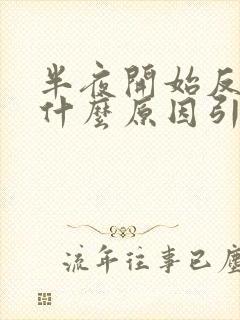 半夜開始反
什麼原因引
流年往事已塵